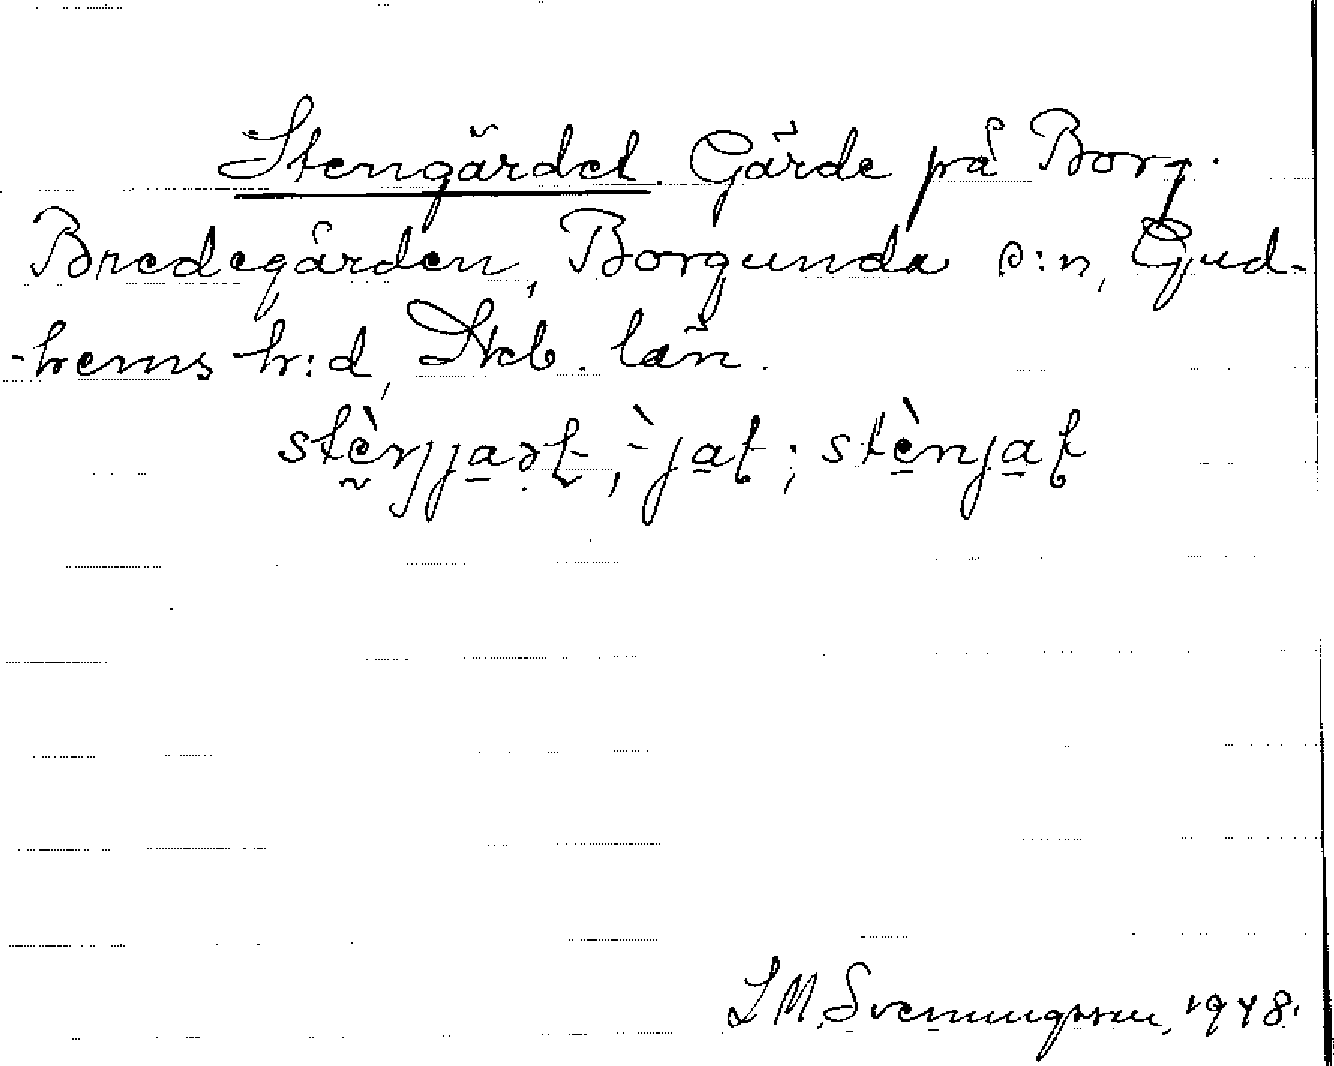 Stengärdet. Gärde på Borg.
Bredegården, Borgunda s:n, Gud-
-hems h:d, Skb. län.
stè̱nja̱ət, -̀ja̱t; stè̱nja̱t
L M. Svenungsson, 1948.